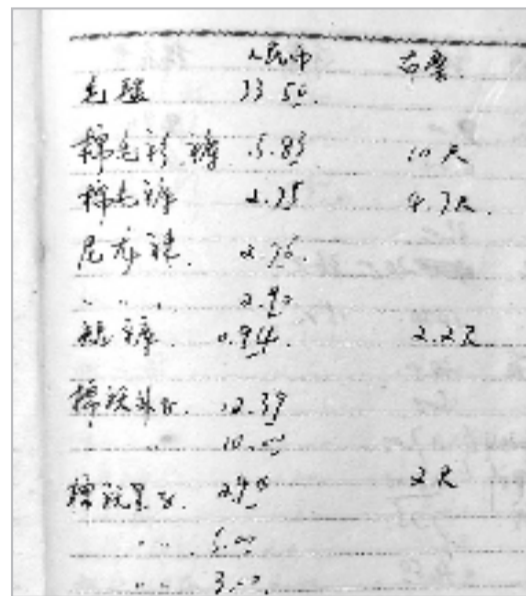 人民币 布票
毛毯 33.50
棉毛衫裤 5.83 10尺
棉毛裤 2.75 4.7尺
尼龙袜 2.76
" " 2.90
短裤 0.94 2.2尺
12.39
10.00
2.90 2尺
" " 5.00
" " 3.00